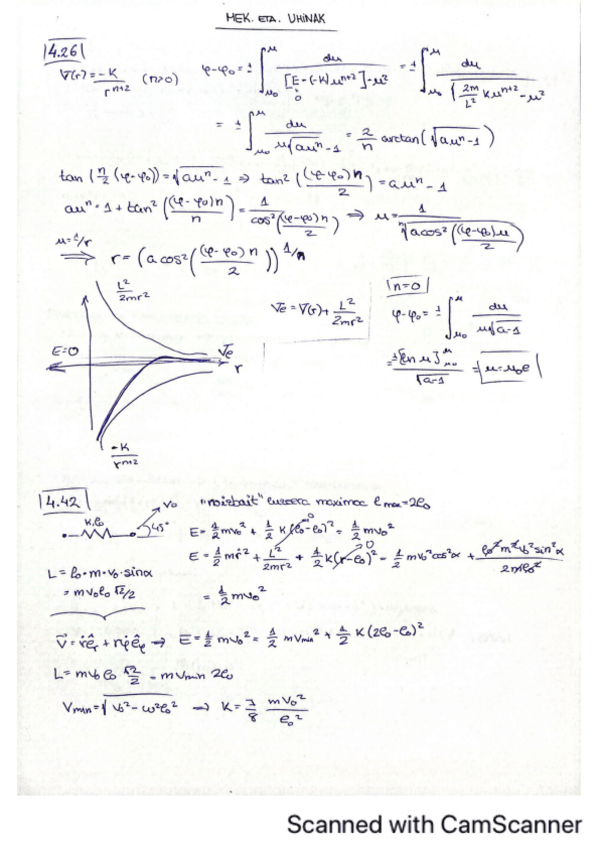 MEK. ETA. UHINAK
4.26
V(r) = -K/r^{n+2} (n>0) φ-φ₀ = ± ∫_{u₀}^{u} du/[E-(-K)u^{n+2}]-u² = ± ∫_{u₀}^{u} du/√(2m/L² K u^{n+2} - u²)
0
= ± ∫_{u₀}^{u} du/u√(au^n - 1) = 2/n arctan(√(au^n - 1))
tan(n/2 (φ-φ₀)) = √(au^n - 1) ⇒ tan²((φ-φ₀)n/2) = au^n - 1
au^n = 1 + tan²((φ-φ₀)n/n) = 1/cos²((φ-φ₀)n/2) ⇒ u = 1/ⁿ√(a cos²((φ-φ₀)n/2))
u = 1/r ⇒ r = (a cos²((φ-φ₀)n/2))^{1/n}
L²/2mr²
Ve = V(r) + L²/2mr²
n=0
φ-φ₀ = ± ∫_{u₀}^{u} du/u√(a-1)
E=0
Ve
r
= ±[ln u]_{u₀}^{u}/√(a-1) = u = u₀e
-K/r^{n+2}
4.42
K, l₀ v₀ 45° "noizbait" luzeera maximoa l max = 2l₀
E = 1/2 mv₀² + 1/2 K(l₀-l₀)² = 1/2 mv₀²
0
E = 1/2 mṙ² + L²/2mr² + 1/2 K(r-l₀)² = 1/2 mv₀² cos²α + l₀² m² v₀² sin²α/2ml₀²
0
L = l₀·m·v₀·sinα
= mv₀l₀ √2/2 = 1/2 mv₀²
v⃗ = ṙê_r + rφ̇ê_φ → E = 1/2 mv₀² = 1/2 mVmin² + 1/2 K(2l₀-l₀)²
L = mv₀ l₀ √2/2 = mVmin 2l₀
Vmin = √(v₀² - ω²l₀²) → K = 7/8 mv₀²/l₀²
Scanned with CamScanner